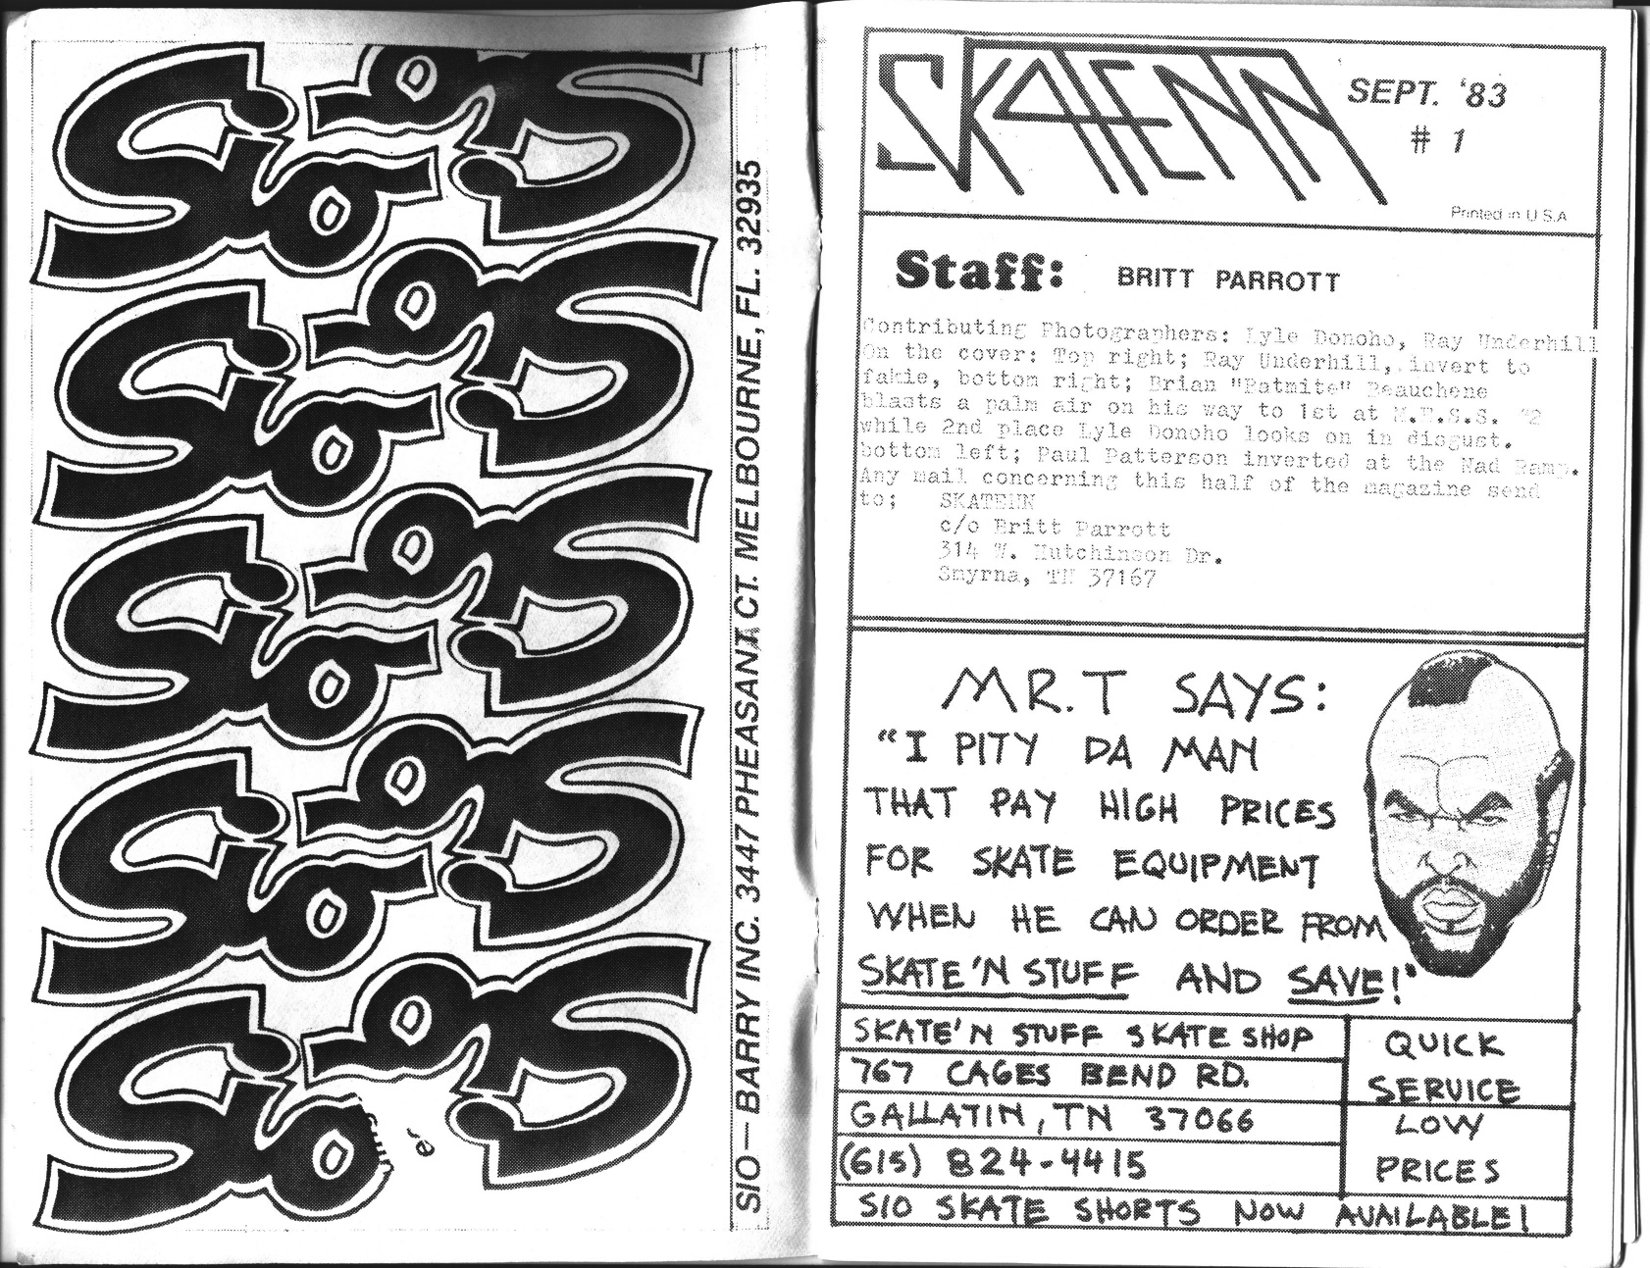 SiO
SiO
SiO
SiO
SiO
SiO
SiO
SiO
SiO
SiO
er
SIO — BARRY INC. 3447 PHEASANT CT. MELBOURNE, FL. 32935
SKATENN
SEPT. '83
# 1
Printed in U.S.A
Staff: BRITT PARROTT
Contributing Photographers: Lyle Donoho, Ray Underhill
On the cover: Top right; Ray Underhill, invert to
fakie, bottom right; Brian "Batmite" Beauchene
blasts a palm air on his way to 1st at #2
while 2nd place Lyle Donoho looks on in disgust.
bottom left; Paul Patterson inverted at the Mad Ramp.
Any mail concerning this half of the magazine send
to; SKATENN
c/o Britt Parrott
314 W. Hutchinson Dr.
Smyrna, TN 37167
MR. T SAYS:
"I PITY DA MAN
THAT PAY HIGH PRICES
FOR SKATE EQUIPMENT
WHEN HE CAN ORDER FROM
SKATE'N STUFF AND SAVE!"
SKATE'N STUFF SKATE SHOP
767 CAGES BEND RD.
GALLATIN, TN 37066
(615) 824-4415
QUICK
SERVICE
LOW
PRICES
SIO SKATE SHORTS NOW AVAILABLE!